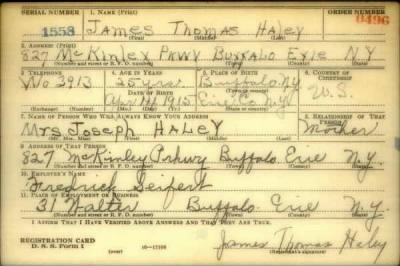 SERIAL NUMBER 1. NAME (Print) ORDER NUMBER
1558 James Thomas Haley 0496
(First) (Middle) (Last)
2. ADDRESS (Print)
827 McKinley Pkwy Buffalo Erie N.Y
(Number and street or R. F. D. number) (Town) (County) (State)
3. TELEPHONE 4. AGE IN YEARS 5. PLACE OF BIRTH 6. COUNTRY OF CITIZENSHIP
Wo 3913 25 yrs Buffalo NY
DATE OF BIRTH (Town or county) U.S.
14 1915 Erie Co NY
(Exchange) (Number) (Mo.) (Day) (Yr.) (State or country)
7. NAME OF PERSON WHO WILL ALWAYS KNOW YOUR ADDRESS 8. RELATIONSHIP OF THAT PERSON
Mrs Joseph HALEY Mother
(Mr., Mrs., Miss) (First) (Middle) (Last)
9. ADDRESS OF THAT PERSON
827 McKinley Prkwy Buffalo Erie N.Y.
(Number and street or R. F. D. number) (Town) (County) (State)
10. EMPLOYER'S NAME
Fredrick Seifert
11. PLACE OF EMPLOYMENT OR BUSINESS
31 Walter Buffalo Erie N.Y.
(Number and street or R. F. D. number) (Town) (County) (State)
I AFFIRM THAT I HAVE VERIFIED ABOVE ANSWERS AND THAT THEY ARE TRUE.
REGISTRATION CARD
D. S. S. Form 1 (over) 16—17105 James Thomas Haley
(Registrant's signature)